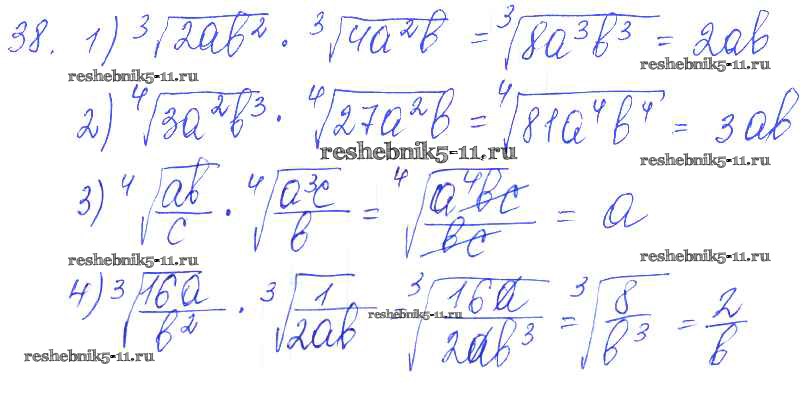 38. 1) ∛(2ab²) · ∛(4a²b) = ∛(8a³b³) = 2ab
reshebnik5-11.ru reshebnik5-11.ru
2) ∜(3a²b³) · ∜(27a²b) = ∜(81a⁴b⁴) = 3ab
reshebnik5-11.ru reshebnik5-11.ru
3) ∜(ab/c) · ∜(a³c/b) = ∜(a⁴bc/bc) = a
reshebnik5-11.ru reshebnik5-11.ru
4) ∛(16a/b²) · ∛(1/2ab) = ∛(16a/2ab³) = ∛(8/b³) = 2/b
reshebnik5-11.ru
reshebnik5-11.ru